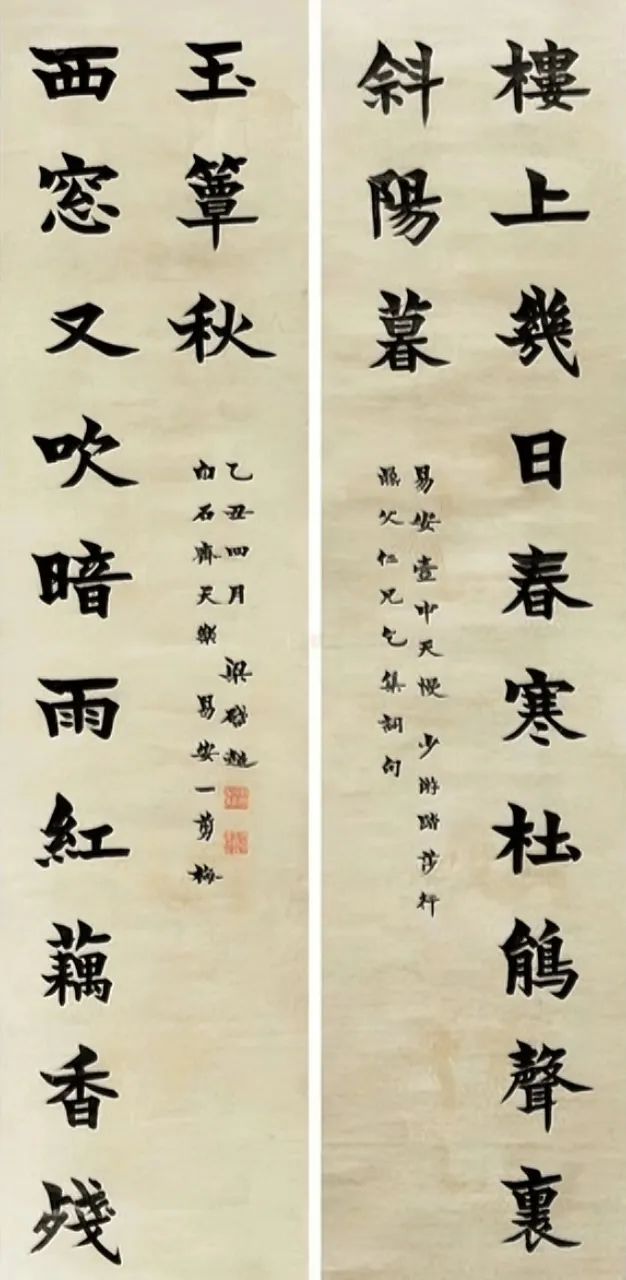 樓上幾日春寒杜鵑聲裏
斜陽暮
易安壺中天慢 少游踏莎行
父仁兄乞集詞句
西窓又吹暗雨紅藕香殘
玉簟秋
白石齊天樂 易安一剪梅
乙丑四月 梁啟超